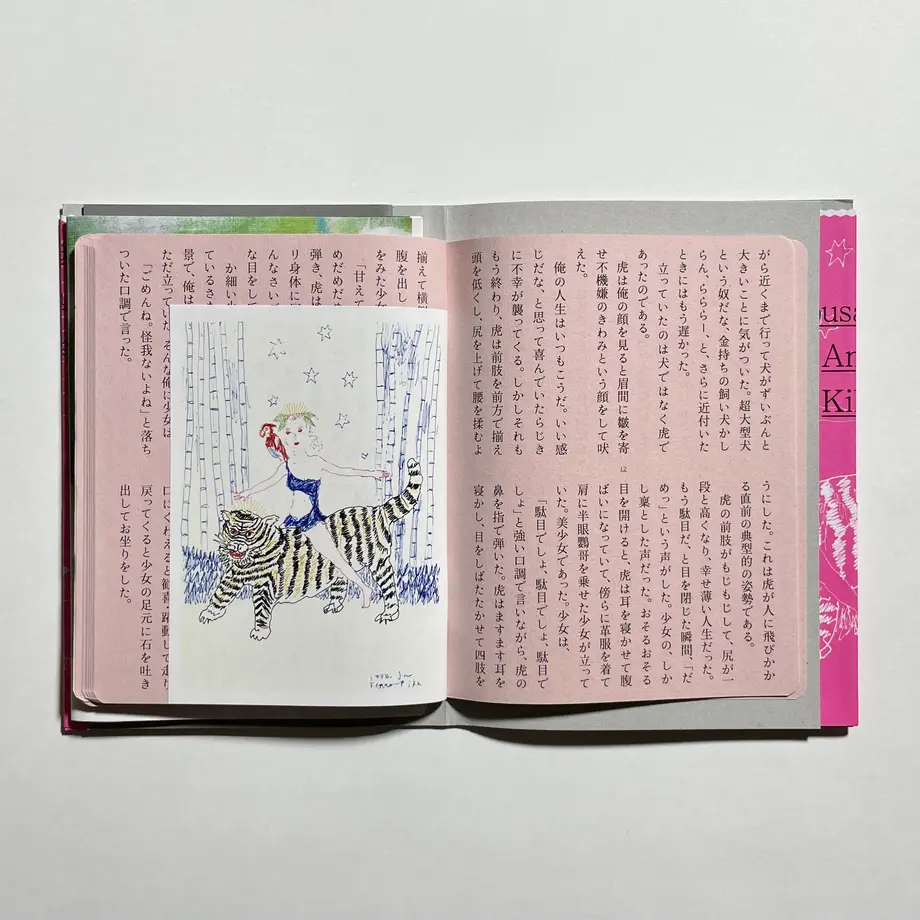 がら近くまで行って犬がずいぶんと
大きいことに気がついた。超大型犬
という奴だな、金持ちの飼い犬かし
らん、らららー、と、さらに近付いた
ときにはもう遅かった。
立っていたのは犬ではなく虎で
あったのである。
虎は俺の顔を見ると眉間に皺を寄
せ不機嫌のきわみという顔をして吠
えた。
俺の人生はいつもこうだ。いい感
じだな、と思って喜んでいたらじき
に不幸が襲ってくる。しかしそれも
もう終わり、虎は前肢を前方で揃え
頭を低くし、尻を上げて腰を揉むよ
12
うにした。これは虎が人に飛びかか
る直前の典型的の姿勢である。
虎の前肢がもじもじして、尻が一
段と高くなり、幸せ薄い人生だった。
もう駄目だ、と目を閉じた瞬間、「だ
めっ」という声がした。少女の、しか
し凜とした声だった。おそるおそる
目を開けると、虎は耳を寝かせて腹
ばいになっていて、傍らに革服を着て
肩に半眼鸚哥を乗せた少女が立って
いた。美少女であった。少女は、
「駄目でしょ、駄目でしょ、駄目で
しょ」と強い口調で言いながら、虎の
鼻を指で弾いた。虎はますます耳を
寝かし、目をしばたたかせて四肢を
揃えて横
腹を出し
をみた少
「甘えて
めだめだ
弾き、虎は
リ身体に
んなさい
な目をし
か細い
ているさ
景で、俺は
ただ立っていた。そんな俺に少女は
「ごめんね。怪我ないよね」と落ち
ついた口調で言った。
口にくわえると歓喜・躍動して走り
戻ってくると少女の足元に石を吐き
出してお坐りをした。
ousa
An
Ki